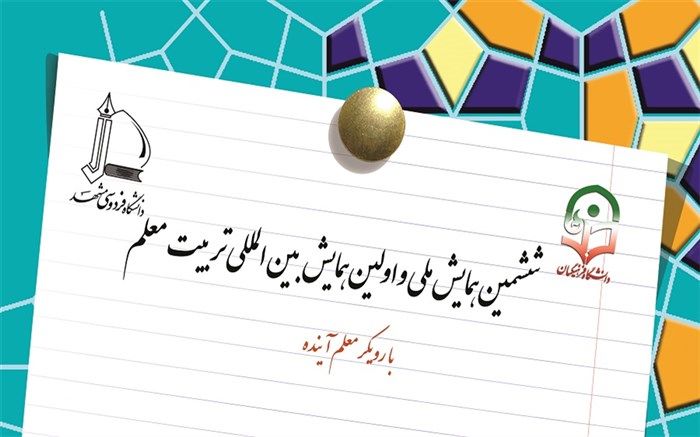 دانشگاه فردوسی مشهد
دانشگاه فرهنگیان
ششمین همایش ملی و اولین همایش بین المللی تربیت معلم
با رویکرد معلم آینده